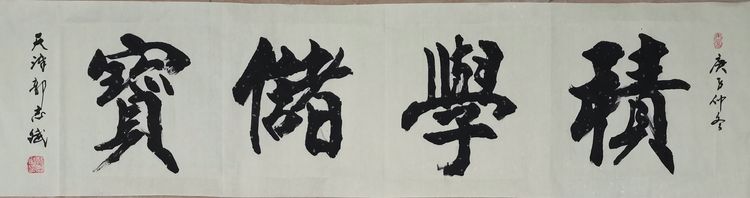 庚子仲冬
積學儲寶
天津郭志斌